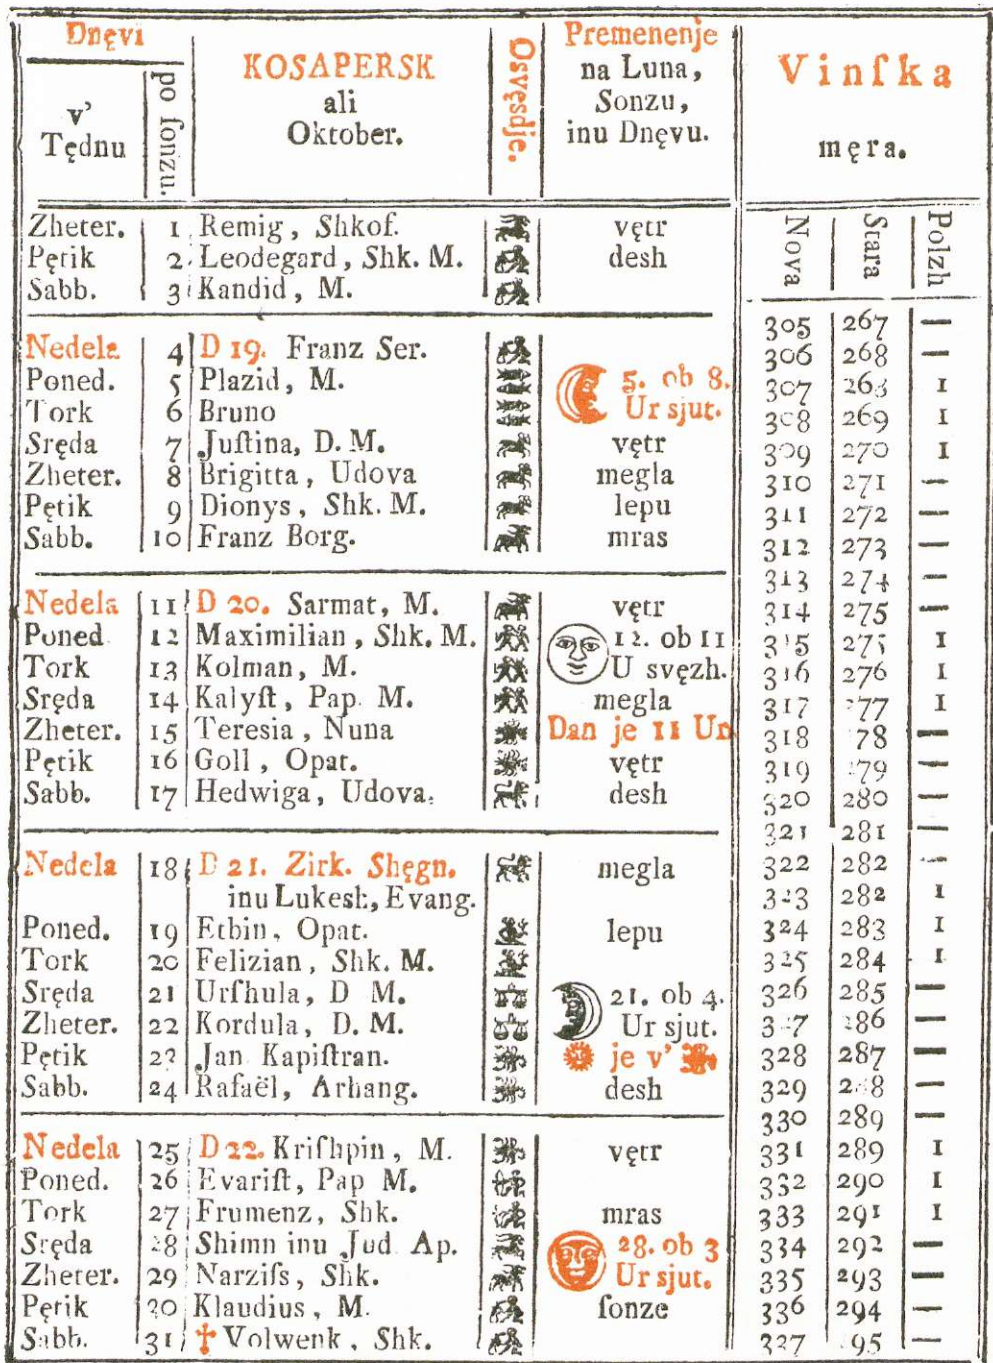 Dnęvi
v' Tędnu
po ſonzu.
KOSAPERSK
ali
Oktober.
Osvęsdje.
Premenenje
na Luna,
Sonzu,
inu Dnęvu.
Vinſka
męra.
Zheter. 1 Remig, Shkof. vętr
Pętik 2 Leodegard, Shk. M. desh
Sabb. 3 Kandid, M.
Nedela 4 D 19. Franz Ser.
Poned. 5 Plazid, M. 5. ob 8.
Tork 6 Bruno Ur sjut.
Sręda 7 Juſtina, D. M. vętr
Zheter. 8 Brigitta, Udova megla
Pętik 9 Dionys, Shk. M. lepu
Sabb. 10 Franz Borg. mras
Nedela 11 D 20. Sarmat, M. vętr
Poned 12 Maximilian, Shk. M. 12. ob 11
Tork 13 Kolman, M. U svęzh.
Sręda 14 Kalyſt, Pap. M. megla
Zheter. 15 Teresia, Nuna Dan je 11 Un
Pętik 16 Goll, Opat. vętr
Sabb. 17 Hedwiga, Udova. desh
Nedela 18 D 21. Zirk. Shęgn. megla
inu Lukesh, Evang.
Poned. 19 Etbin, Opat. lepu
Tork 20 Felizian, Shk. M.
Sręda 21 Urſhula, D M. 21. ob 4.
Zheter. 22 Kordula, D. M. Ur sjut.
Pętik 23 Jan Kapiſtran. je v'
Sabb. 24 Rafaël, Arhang. desh
Nedela 25 D 22. Kriſhpin, M. vętr
Poned. 26 Evariſt, Pap M.
Tork 27 Frumenz, Shk. mras
Sręda 28 Shimn inu Jud Ap. 28. ob 3
Zheter. 29 Narziſs, Shk. Ur sjut.
Pętik 30 Klaudius, M. ſonze
Sabb. 31 † Volwenk, Shk.
Nova Stara Polzh
305 267 —
306 268 —
307 268 1
308 269 1
309 270 1
310 271 —
311 272 —
312 273 —
313 274 —
314 275 —
315 275 1
316 276 1
317 277 1
318 78 —
319 279 —
320 280 —
321 281 —
322 282 —
323 282 1
324 283 1
325 284 1
326 285 —
327 286 —
328 287 —
329 288 —
330 289 —
331 289 1
332 290 1
333 291 1
334 292 —
335 293 —
336 294 —
337 95 —